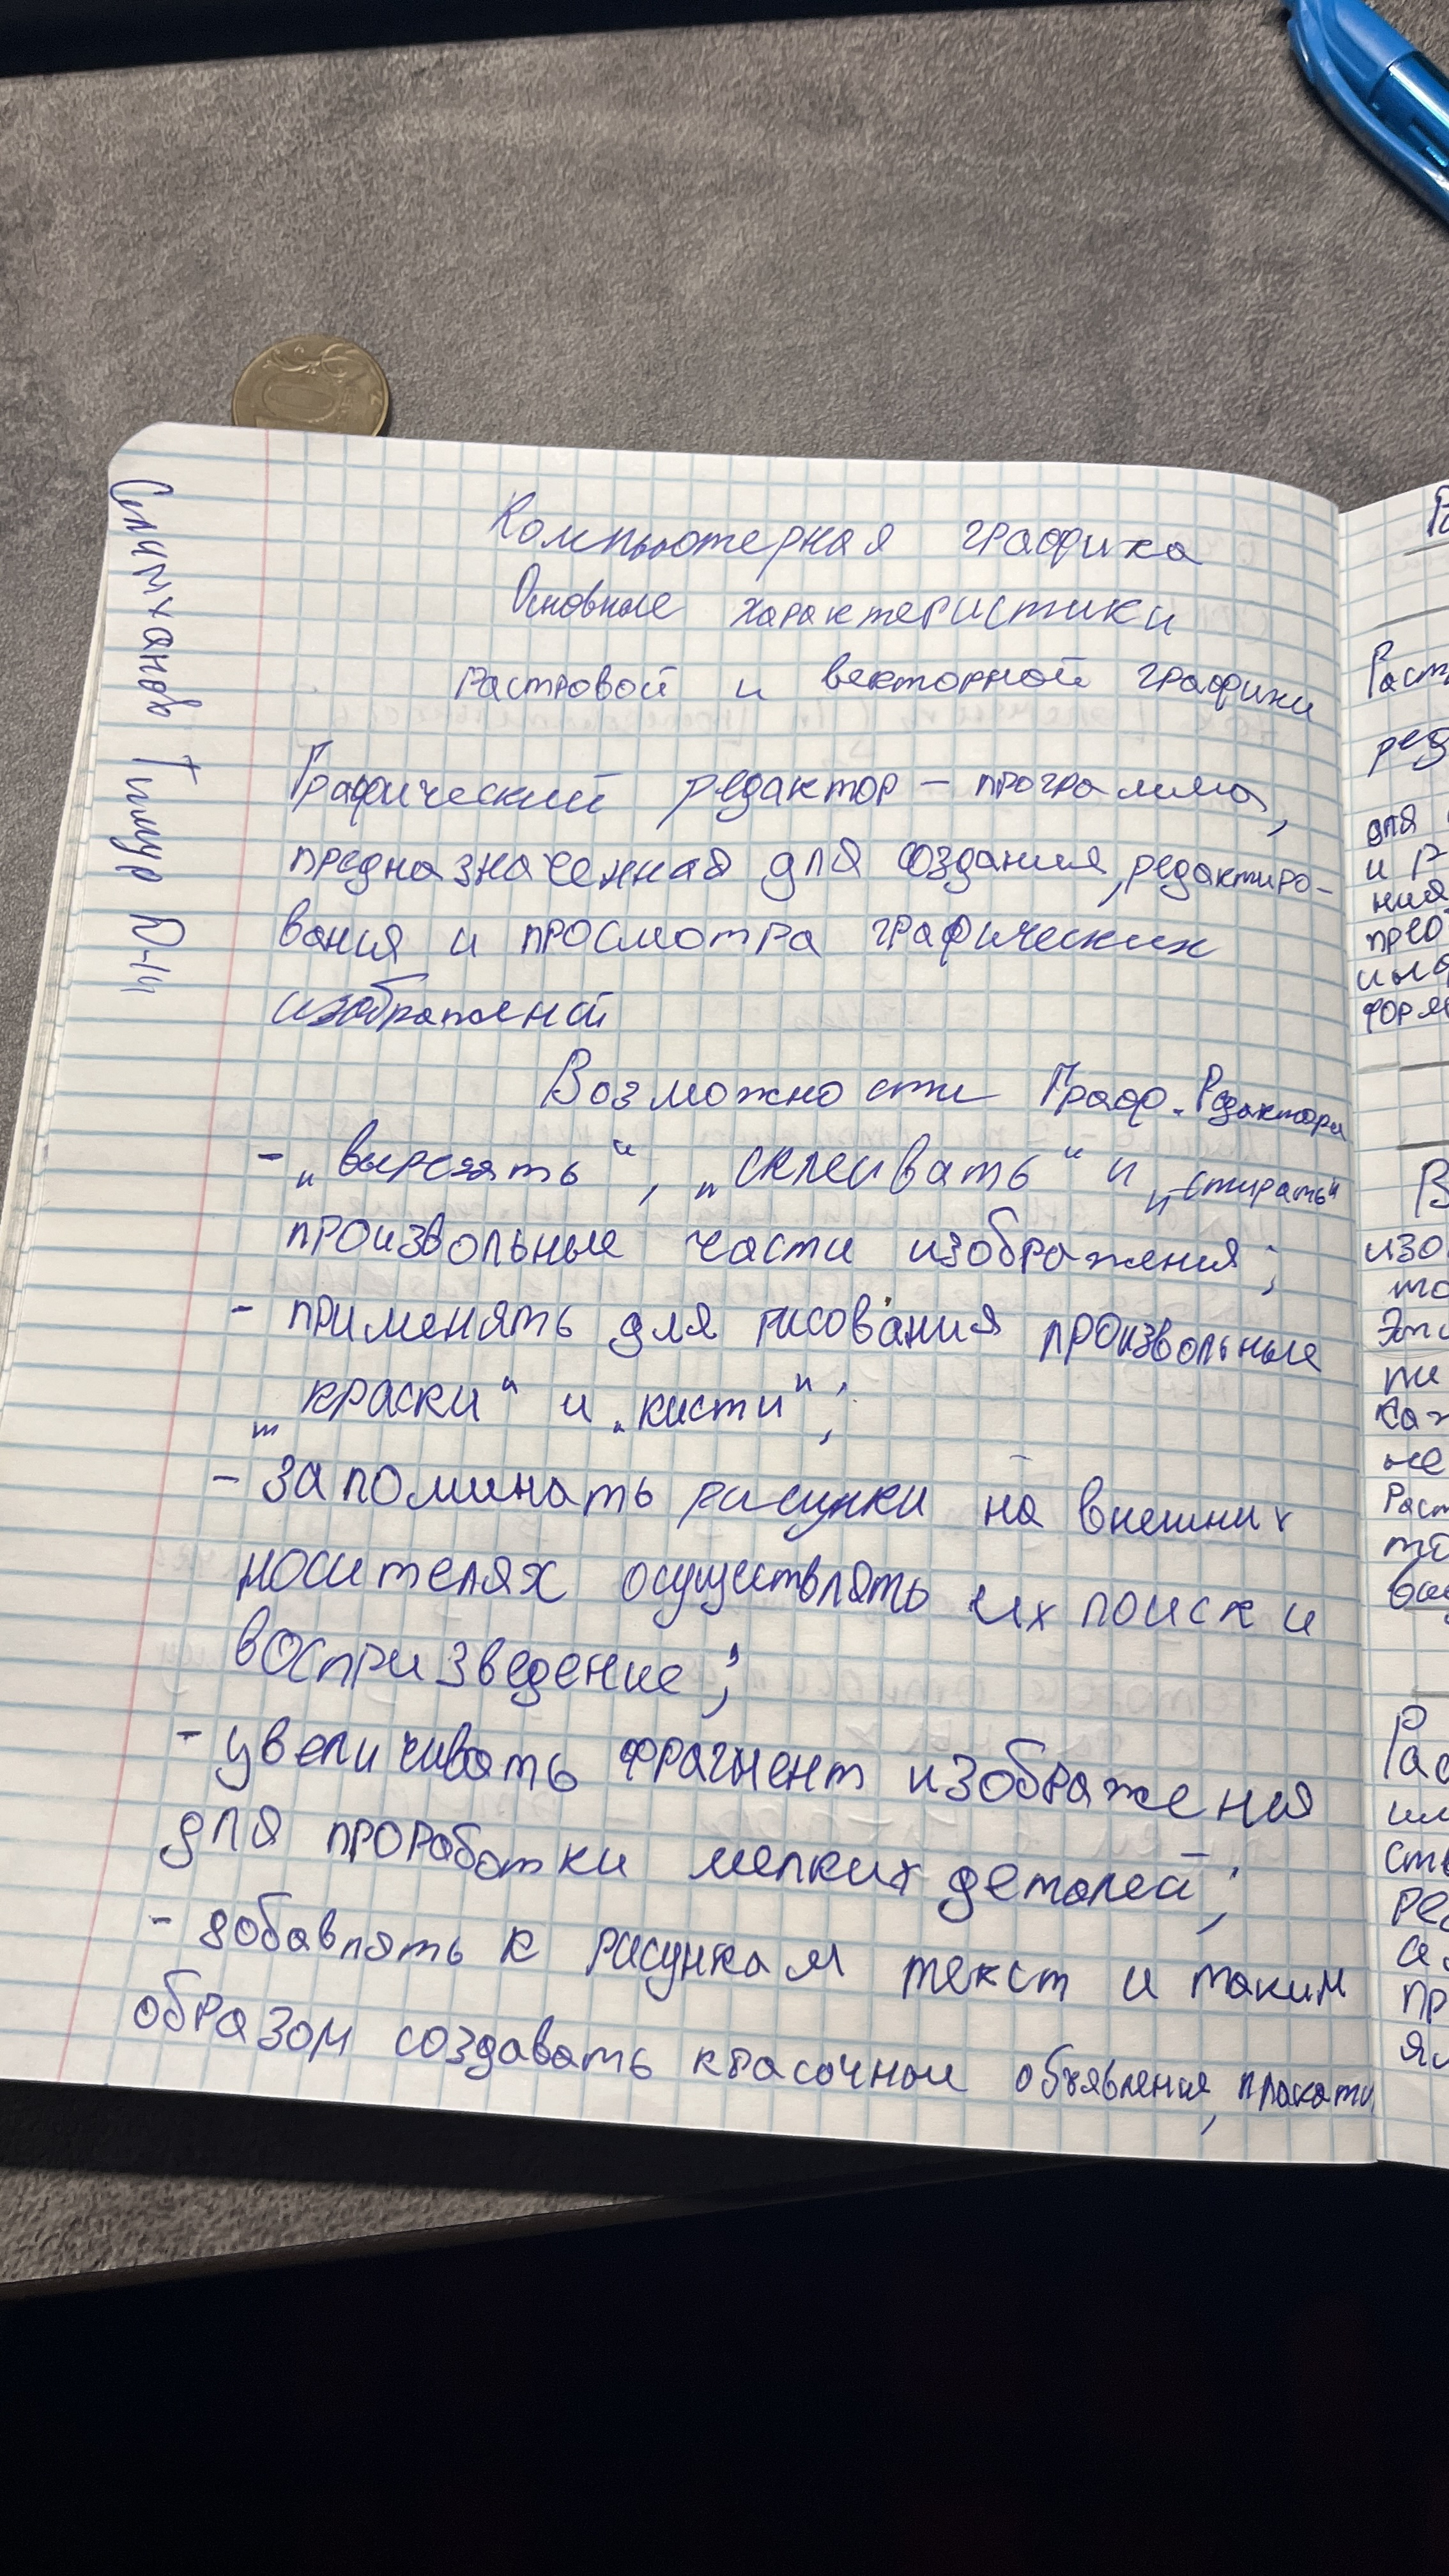 Компьютерная графика
Основные характеристики
растровой и векторной графики
Графический редактор – программа,
предназначенная для создания, редактиро-
вания и просмотра графических
изображений
Возможности Граф. Редактора
- „вырезать“, „склеивать“ и „стирать“
произвольные части изображения;
- применять для рисования произвольные
„краски“ и „кисти“;
- запоминать рисунки на внешних
носителях осуществлять их поиск и
воспризведение;
- увеличивать фрагмент изображения
для проработки мелких деталей;
- добавлять к рисункам текст и таким
образом создавать красочные объявления, плакаты
Тимур
Раст
ред
для
и р
ния
прео
форм
В
изо
то
Эти
пи
каж
не
Раст
Рас
ств
рес
пр
10